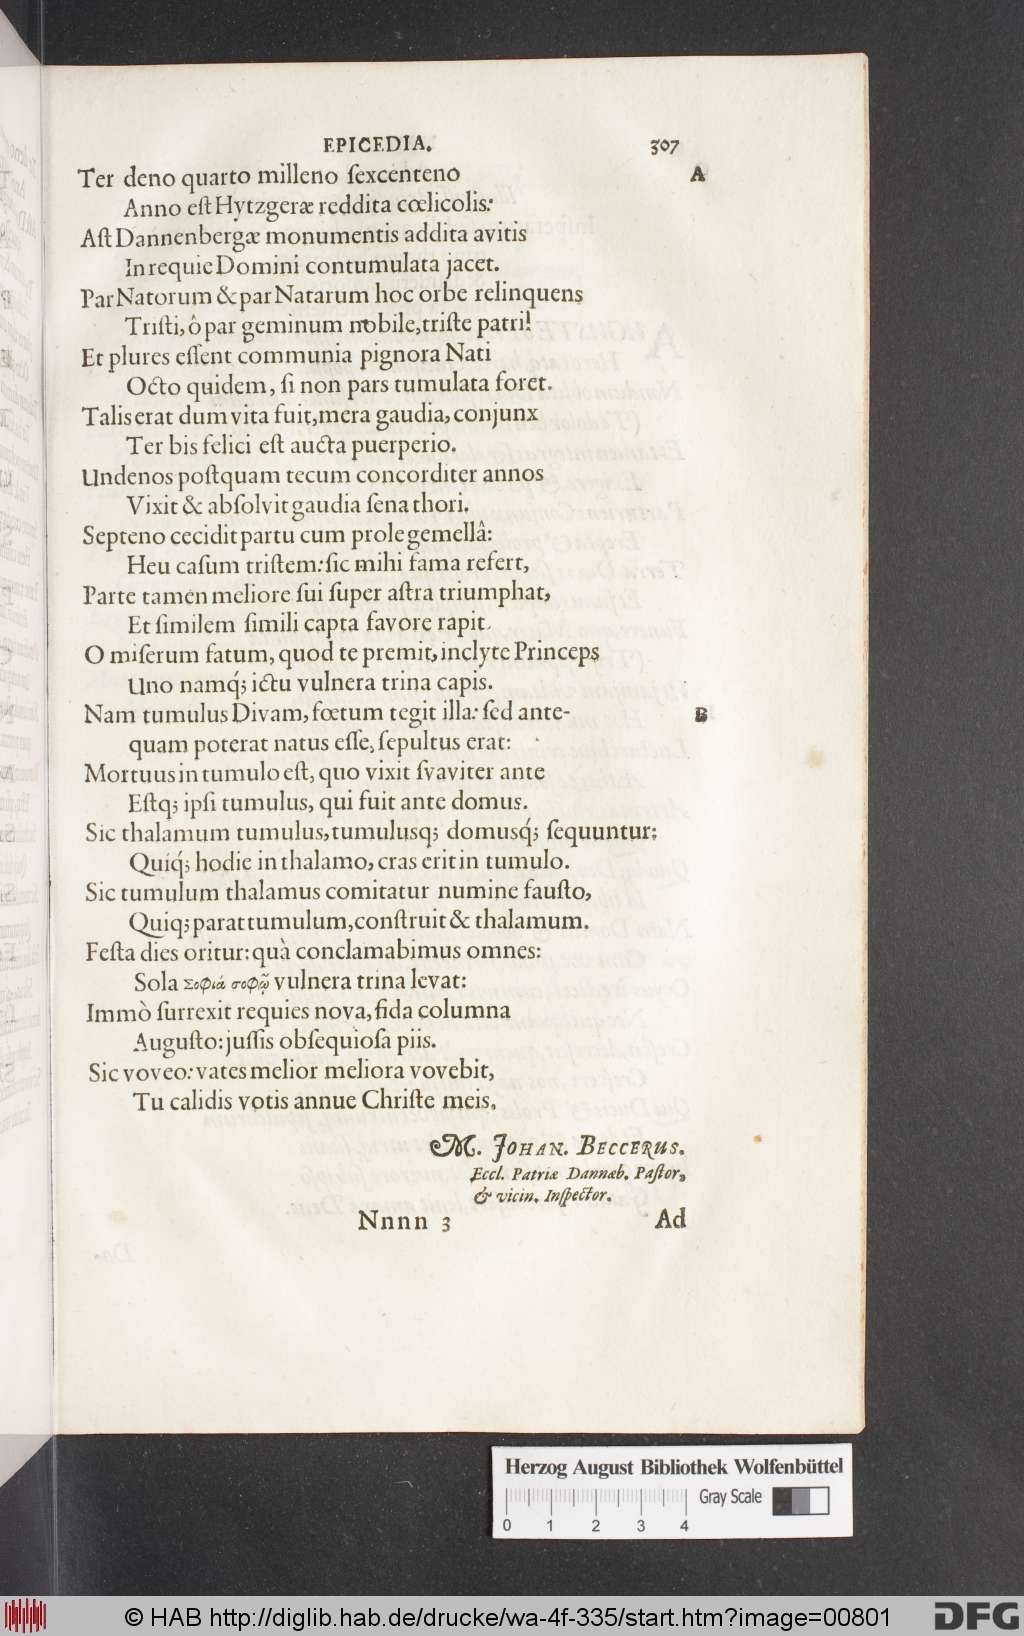 EPICEDIA. 307
Ter deno quarto milleno ſexcenteno A
Anno eſt Hytzgeræ reddita cœlicolis:
Aſt Dannenbergæ monumentis addita avitis
In requie Domini contumulata jacet.
Par Natorum & par Natarum hoc orbe relinquens
Triſti, ô par geminum nobile, triſte patri!
Et plures eſſent communia pignora Nati
Octo quidem, ſi non pars tumulata foret.
Talis erat dum vita fuit, mera gaudia, conjunx
Ter bis felici eſt aucta puerperio.
Undenos poſtquam tecum concorditer annos
Vixit & abſolvit gaudia ſena thori.
Septeno cecidit partu cum prole gemellâ:
Heu caſum triſtem: ſic mihi fama refert,
Parte tamen meliore ſui ſuper aſtra triumphat,
Et ſimilem ſimili capta favore rapit.
O miſerum fatum, quod te premit, inclyte Princeps
Uno namq́; ictu vulnera trina capis.
Nam tumulus Divam, fœtum tegit illa: ſed ante- B
quam poterat natus eſſe, ſepultus erat:
Mortuus in tumulo eſt, quo vixit ſvaviter ante
Eſtq; ipſi tumulus, qui fuit ante domus.
Sic thalamum tumulus, tumulusq; domusq́; ſequuntur:
Quiq́; hodie in thalamo, cras erit in tumulo.
Sic tumulum thalamus comitatur numine fauſto,
Quiq; parat tumulum, conſtruit & thalamum.
Feſta dies oritur: quà conclamabimus omnes:
Sola Σοφιά σοφῷ vulnera trina levat:
Immò ſurrexit requies nova, fida columna
Auguſto: juſſis obſequioſa piis.
Sic voveo: vates melior meliora vovebit,
Tu calidis votis annue Chriſte meis.
M. JOHAN. BECCERUS.
Eccl. Patriæ Dannæb. Paſtor,
& vicin. Inſpector.
Nnnn 3 Ad
Herzog August Bibliothek Wolfenbüttel
Gray Scale
0 1 2 3 4
© HAB http://diglib.hab.de/drucke/wa-4f-335/start.htm?image=00801 DFG